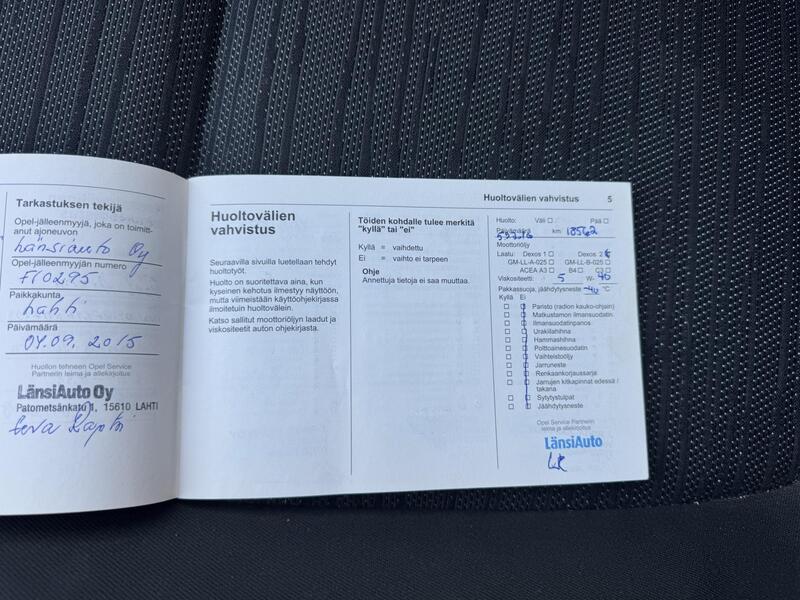 Tarkastuksen tekijä
Opel-jälleenmyyjä, joka on toimitt-
anut ajoneuvon
Länsiauto Oy
Opel-jälleenmyyjän numero
FI0295
Paikkakunta
Lahti
Päivämäärä
04.09.2015
Huollon tehneen Opel Service
Partnerin leima ja allekirjoitus
LänsiAuto Oy
Patometsänkatu 1, 15610 LAHTI
Huoltovälien
vahvistus
Seuraavilla sivuilla luetellaan tehdyt
huoltotyöt.
Huolto on suoritettava aina, kun
kyseinen kehotus ilmestyy näyttöön,
mutta viimeistään käyttöohjekirjassa
ilmoitetuin huoltovälein.
Katso sallitut moottoriöljyn laadut ja
viskositeetit auton ohjekirjasta.
Töiden kohdalle tulee merkitä
"kyllä" tai "ei"
Kyllä = vaihdettu
Ei = vaihto ei tarpeen
Ohje
Annettuja tietoja ei saa muuttaa.
Huoltovälien vahvistus 5
Huolto: Väli Pää
Päivämäärä km 18562
Moottoriöljy
Laatu: Dexos 1 Dexos 2
GM-LL-A-025 GM-LL-B-025
ACEA A3 B4 C3
Viskositeetti: 5 W- 40
Pakkassuoja, jäähdytysneste -40 °C
Kyllä Ei
Paristo (radion kauko-ohjain)
Matkustamon ilmansuodatin.
Ilmansuodatinpanos
Urakiilahihna
Hammashihna
Polttoainesuodatin
Vaihteistoöljy
Jarruneste
Renkaankorjaussarja
Jarrujen kitkapinnat edessä /
takana
Sytytystulpat
Jäähdytysneste
Opel Service Partnerin
leima ja allekirjoitus
LänsiAuto